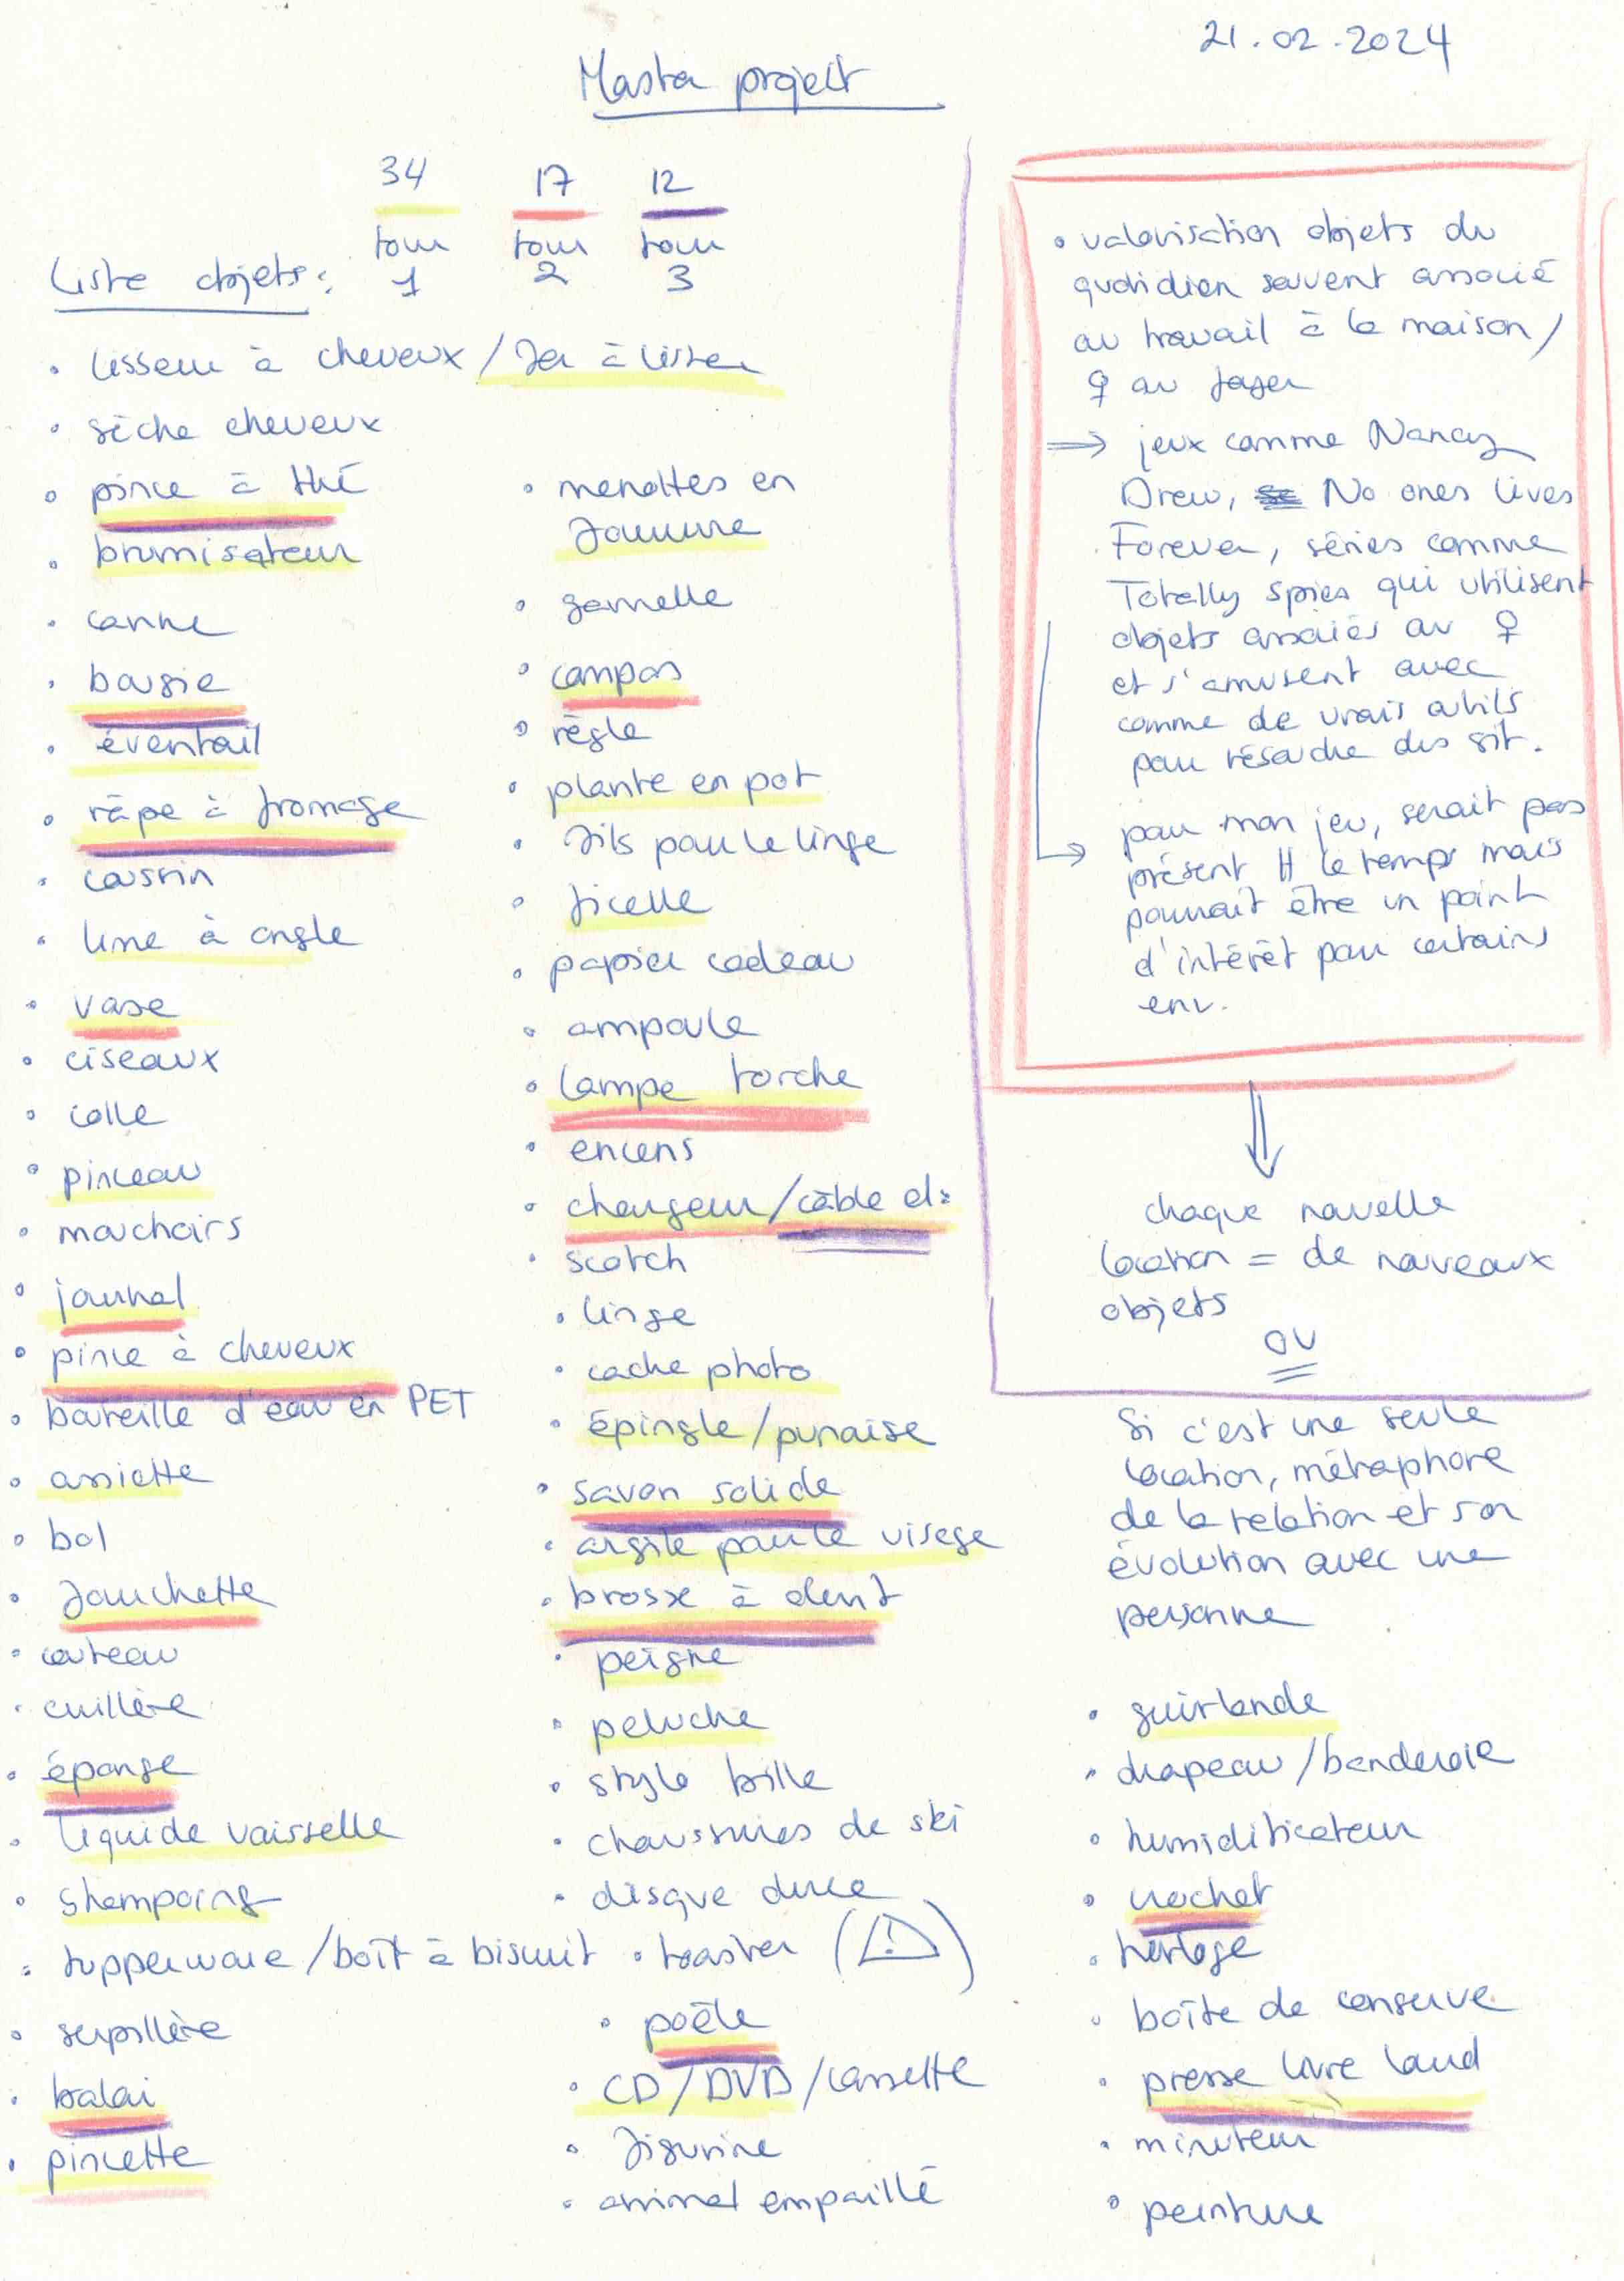 21.02.2024
Master projekt
34 17 12
tour tour tour
1 2 3
Liste objets :
• lisseur à cheveux / fer à lisser
• sèche cheveux
• pince à thé
• brumisateur
• canne
• bougie
• éventail
• râpe à fromage
• coussin
• lime à ongle
• vase
• ciseaux
• colle
• pinceau
• mouchoirs
• journal
• pince à cheveux
• bouteille d'eau en PET
• assiette
• bol
• fourchette
• couteau
• cuillère
• éponge
• liquide vaisselle
• shampoing
• tupperware / boît à biscuit
• serpillère
• balai
• pincette
• menottes en
fourrure
• gamelle
• compas
• règle
• plante en pot
• fils pour le linge
• ficelle
• papier cadeau
• ampoule
• lampe torche
• encens
• chargeur / câble él.
• scotch
• linge
• cache photo
• épingle / punaise
• savon solide
• argile pour le visage
• brosse à dent
• peigne
• peluche
• stylo bille
• chaussures de ski
• disque dur
• toaster (⚠)
• poêle
• CD / DVD / cassette
• figurine
• animal empaillé
• valorisation objets du
quotidien souvent associé
au travail à la maison /
♀ au foyer
⇒ jeux comme Nancy
Drew, No ones lives
Forever, séries comme
Totally spies qui utilisent
objets associés au ♀
et s'amusent avec
comme de vrais outils
pour résoudre des sit.
→ pour mon jeu, serait pas
présent tt le temps mais
pourrait être un point
d'intérêt pour certains
env.
chaque nouvelle
location = de nouveaux
objets
OU
Si c'est une seule
location, métaphore
de la relation et son
évolution avec une
personne
• guirlande
• drapeau / banderole
• humidificateur
• crochet
• horloge
• boîte de conserve
• presse livre lourd
• minuteur
• peinture